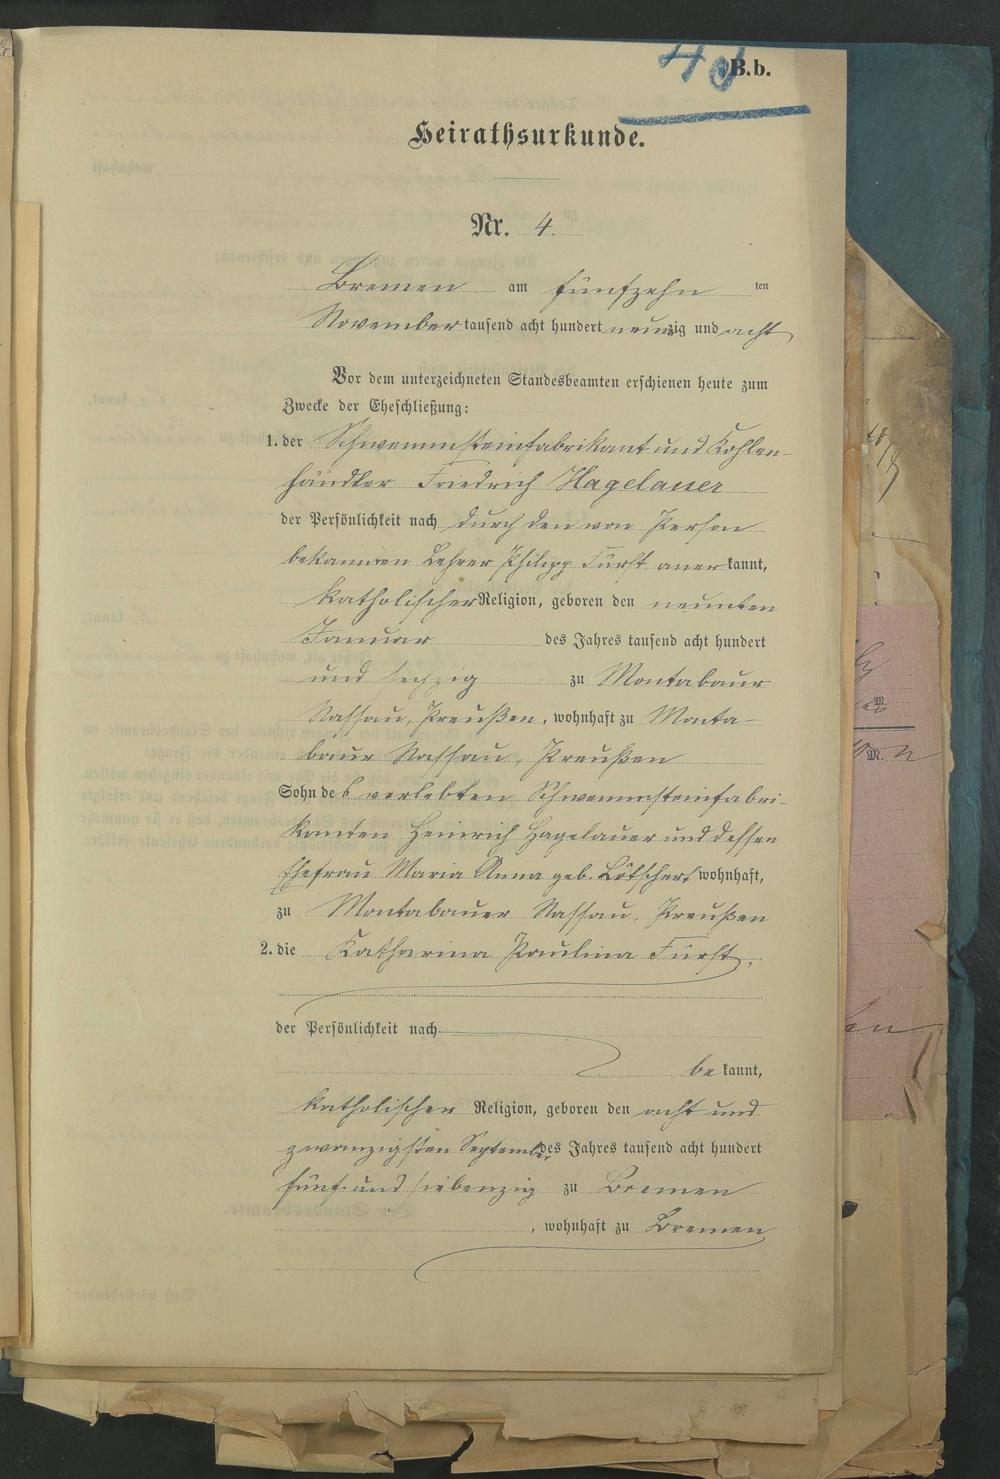 B.b.
Heirathsurkunde.
Nr. 4.
Bremen am fünfzehn ten
November tausend acht hundert neunzig und acht
Vor dem unterzeichneten Standesbeamten erschienen heute zum
Zwecke der Eheschließung:
1. der Schwemmsteinfabrikant und Kohlen-
händler Friedrich Hagelauer
der Persönlichkeit nach durch den von Person
bekannten Lehrer Philipp Fürst aner kannt,
katholischer Religion, geboren den neunten
Januar des Jahres tausend acht hundert
und sechzig zu Montabaur
Nassau, Preußen, wohnhaft zu Monta-
baur Nassau, Preußen
Sohn des verlebten Schwemmsteinfabri-
kanten Heinrich Hagelauer und dessen
Ehefrau Maria Anna geb. Lötschert wohnhaft,
zu Montabauer Nassau, Preußen
2. die Katharina Paulina Fürst,
der Persönlichkeit nach
be kannt,
katholischer Religion, geboren den acht und
zwanzigsten September des Jahres tausend acht hundert
fünf und siebenzig zu Bremen
, wohnhaft zu Bremen